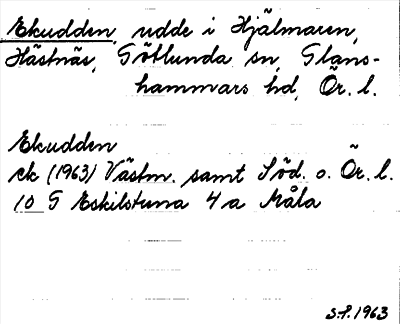 Ekudden, udde i Hjälmaren,
Hästnäs, Götlunda sn, Glans-
hammars hd, Ör. l.
Ekudden
ek (1963) Västm. samt Söd. o. Ör. l.
10 G Eskilstuna 4 a Måla
S.F. 1963